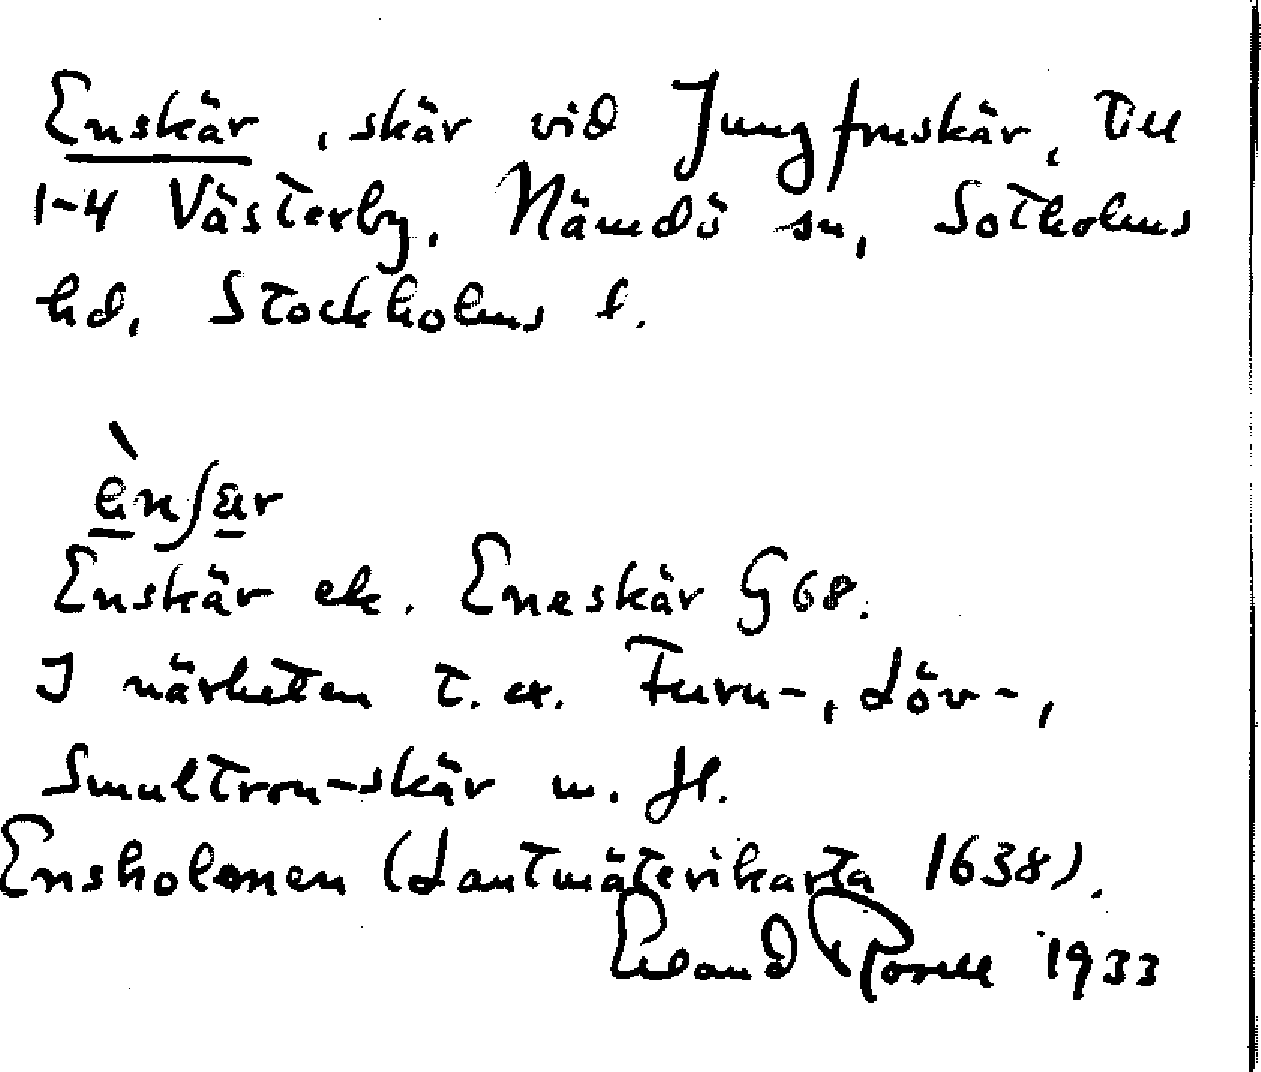 Enskär, skär vid Jungfruskär, till
1-4 Västerby, Nämdö sn, Sotholms
hd, Stockholms l.
ènʃär
Enskär ek. Eneskär G 68.
I närheten t. ex. Furu-, Löv-,
Smultron-skär m. fl.
Ensholmen (Lantmäterikarta 1638).
Erland Rosell 1933